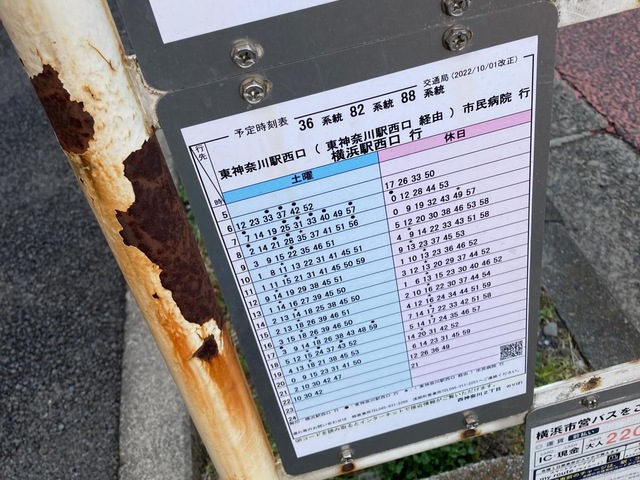 交通局 (2022/10/01改正)
予定時刻表 36 系統 82 系統 88 系統
行先
東神奈川駅西口 ( 東神奈川駅西口 経由 ) 市民病院 行
横浜駅西口 行
時 土曜 休日
5
6 12 23 33 37 42 52 17 26 33 50
7 7 14 19 25 31 33 40 49 57 0 12 28 44 53
8 2 14 21 28 35 37 41 51 56 0 9 19 32 43 49 57
9 3 9 15 22 35 46 51 5 12 20 30 38 46 53 58
10 1 8 11 13 22 31 41 45 51 4 9 14 22 33 43 51 58
11 1 11 15 21 31 41 45 50 59 9 13 23 37 45 53
12 9 14 19 29 38 45 51 1 10 13 23 36 46 52
13 1 14 16 27 39 45 50 3 12 13 20 29 37 44 52
14 2 13 14 18 25 38 45 50 1 6 13 15 23 30 40 46 52
15 2 13 18 26 39 46 51 2 10 16 22 30 37 44 54
16 3 15 18 26 39 46 50 4 12 16 24 34 44 51 59
17 3 9 14 18 26 38 43 48 59 7 14 17 22 33 42 51 58
18 5 12 15 24 37 43 52 5 14 17 24 35 46 57
19 4 13 18 21 38 45 53 14 20 31 42 52
20 0 9 15 23 31 41 50 6 14 23 31 45 59
21 2 10 30 42 47 12 26 36 49
22 10 30 42 21
23
24
横浜市営バスを
運賃
IC 現金 大人 220
my route